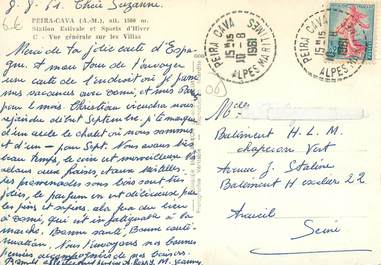 66
J. J. P. Chère Suzanne.
PEIRA-CAVA (A.-M.), alt. 1500 m.
Station Estivale et Sports d'Hiver
C - Vue générale sur les Villas
Merci de ta jolie carte d'Espa-
gne. A mon tour de t'envoyer
une carte de l'endroit où je passe
mes vacances avec Domi, et mes
pour le mois. Christian viendra nous
rejoindre début Septembre. Je te marque
d'un le chalet où nous sommes
et d'un - pour Sept. Nous avons
beau temps, le coin est merveilleux
dedans aux fraises, et aux Myrtilles.
les promenades sous bois sont très
jolies, le parfum en est délicieux par
les pins et sapins, cela fera du bien
à Domi, qui est infatigable à la
marche. Bonne santé, Bonne conti-
nuation. Nous t'envoyons nos bonnes
pensées accompagnées de nos baisers.
(06)
PEIRA CAVA
15H15
10-8
1961
ALPES MARITIMES
PEIRA CAVA
15H15
10-8
1961
ALPES MARITIMES
Melle
Batiment H. L. M.
chaperon Vert
Avenue J. Staline
Batiment H escalier 22
Arcueil
Seine